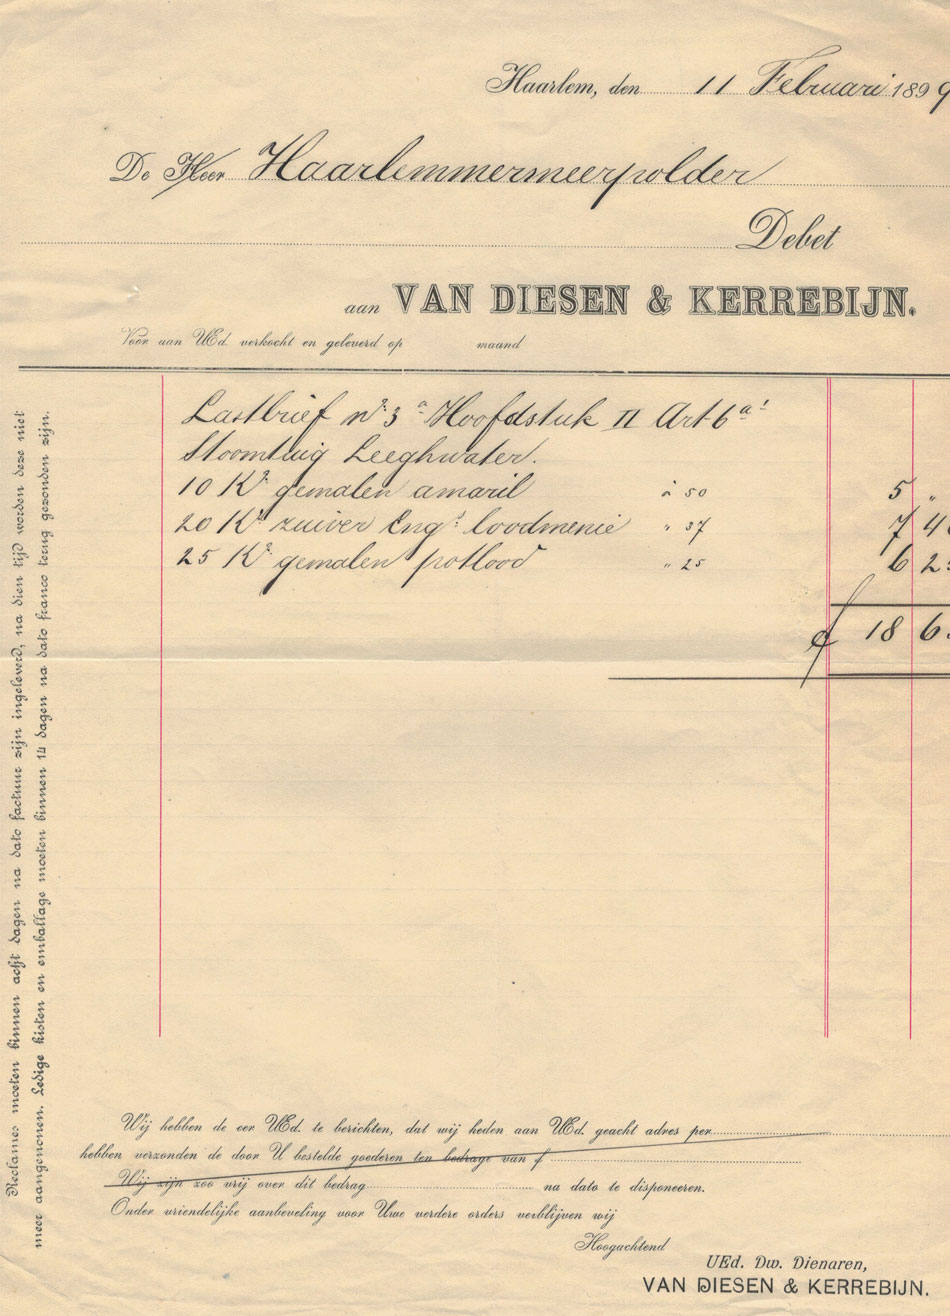 Haarlem, den 11 Februari 1899
De Heer Haarlemmermeerpolder
Debet
aan VAN DIESEN & KERREBIJN.
Voor aan UEd. verkocht en geleverd op maand
Lastbrief no. 3a Hoofdstuk II Art 6a!
Stoomtuig Leeghwater.
10 Ko gemalen amaril à 50 5 "
20 Ko zuiver Engs loodmenie " 37 7 4
25 Ko gemalen potlood " 25 6 2
f 18 6
Reclames moeten binnen acht dagen na dato factuur zijn ingeleverd, na dien tijd worden deze niet
meer aangenomen. Ledige kisten en emballage moeten binnen 14 dagen na dato franco terug gezonden zijn.
Wij hebben de eer UEd. te berichten, dat wij heden aan UEd. geacht adres per
hebben verzonden de door U bestelde goederen ten bedrage van f
Wij zijn zoo vrij over dit bedrag na dato te disponeeren.
Onder vriendelijke aanbeveling voor Uwe verdere orders verblijven wij
Hoogachtend
UEd. Dw. Dienaren,
VAN DIESEN & KERREBIJN.